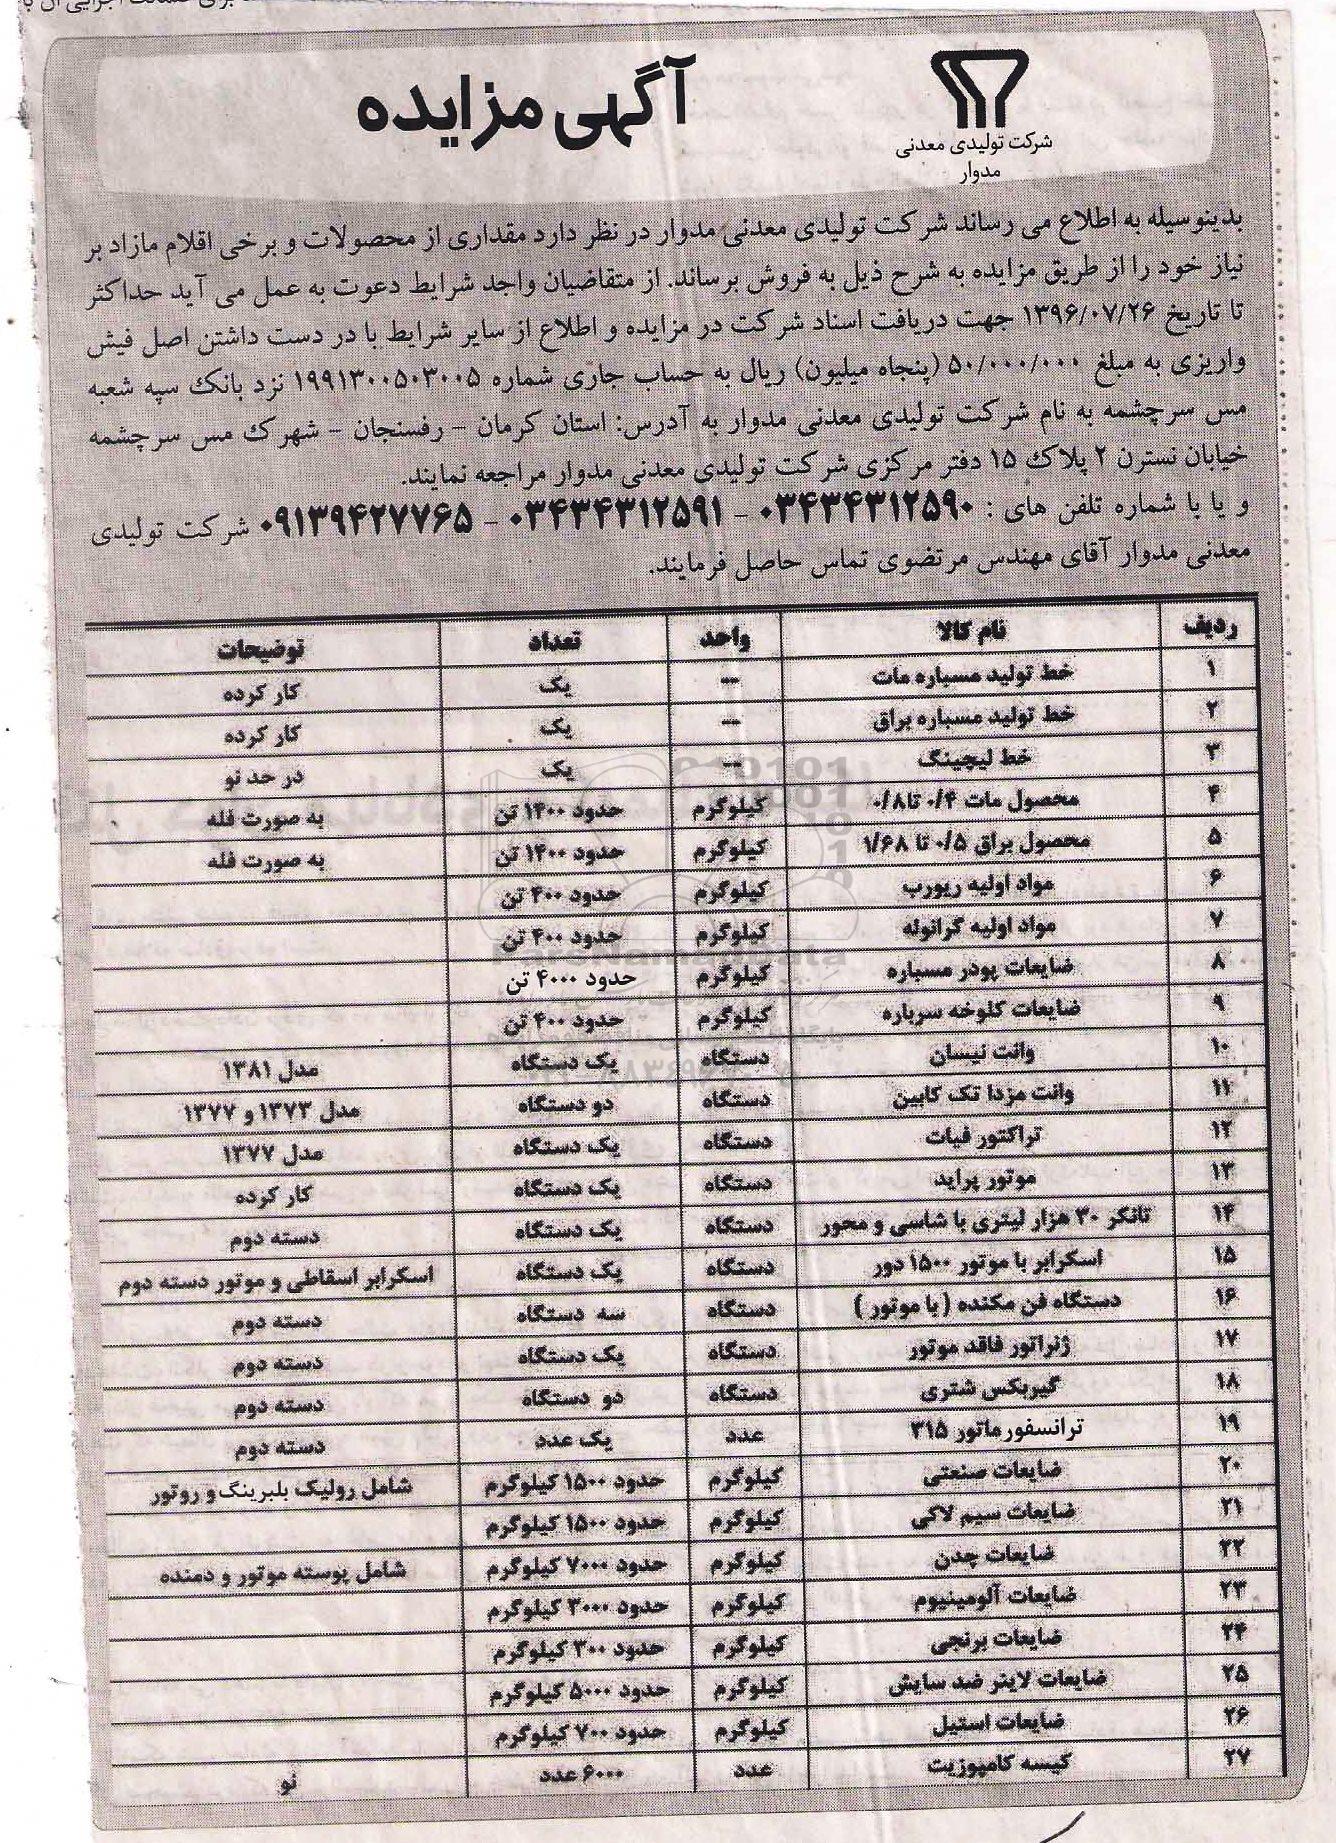 شرکت تولیدی معدنی
مدوار
آگهی مزایده
بدینوسیله به اطلاع می رساند شرکت تولیدی معدنی مدوار در نظر دارد مقداری از محصولات و برخی اقلام مازاد بر
نیاز خود را از طریق مزایده به شرح ذیل به فروش برساند. از متقاضیان واجد شرایط دعوت به عمل می آید حداکثر
تا تاریخ ۱۳۹۶/۰۷/۲۶ جهت دریافت اسناد شرکت در مزایده و اطلاع از سایر شرایط با در دست داشتن اصل فیش
واریزی به مبلغ ۵۰/۰۰۰/۰۰۰ (پنجاه میلیون) ریال به حساب جاری شماره ۱۹۹۱۳۰۰۵۰۳۰۰۵ نزد بانک سپه شعبه
مس سرچشمه به نام شرکت تولیدی معدنی مدوار به آدرس: استان کرمان - رفسنجان - شهرک مس سرچشمه
خیابان نسترن ۲ پلاک ۱۵ دفتر مرکزی شرکت تولیدی معدنی مدوار مراجعه نمایند.
و یا با شماره تلفن های : ۰۳۴۳۴۳۱۲۵۹۰ - ۰۳۴۳۴۳۱۲۵۹۱ - ۰۹۱۳۹۴۲۷۷۶۵ شرکت تولیدی
معدنی مدوار آقای مهندس مرتضوی تماس حاصل فرمایند.
ردیف نام کالا واحد تعداد توضیحات
۱ خط تولید مسباره مات -- یک کار کرده
۲ خط تولید مسباره براق -- یک کار کرده
۳ خط لیچینگ -- یک در حد نو
۴ محصول مات ۰/۴ تا ۰/۸ کیلوگرم حدود ۱۴۰۰ تن به صورت فله
۵ محصول براق ۰/۵ تا ۱/۶۸ کیلوگرم حدود ۱۴۰۰ تن به صورت فله
۶ مواد اولیه ریورب کیلوگرم حدود ۴۰۰ تن
۷ مواد اولیه گرانوله کیلوگرم حدود ۴۰۰ تن
۸ ضایعات پودر مسباره کیلوگرم حدود ۴۰۰۰ تن
۹ ضایعات کلوخه سرباره کیلوگرم حدود ۴۰۰ تن
۱۰ وانت نیسان دستگاه یک دستگاه مدل ۱۳۸۱
۱۱ وانت مزدا تک کابین دستگاه دو دستگاه مدل ۱۳۷۳ و ۱۳۷۷
۱۲ تراکتور فیات دستگاه یک دستگاه مدل ۱۳۷۷
۱۳ موتور پراید دستگاه یک دستگاه کار کرده
۱۴ تانکر ۳۰ هزار لیتری با شاسی و محور دستگاه یک دستگاه دسته دوم
۱۵ اسکرابر با موتور ۱۵۰۰ دور دستگاه یک دستگاه اسکرابر اسقاطی و موتور دسته دوم
۱۶ دستگاه فن مکنده ( با موتور ) دستگاه سه دستگاه دسته دوم
۱۷ ژنراتور فاقد موتور دستگاه یک دستگاه دسته دوم
۱۸ گیربکس شتری دستگاه دو دستگاه دسته دوم
۱۹ ترانسفورماتور ۳۱۵ عدد یک عدد دسته دوم
۲۰ ضایعات صنعتی کیلوگرم حدود ۱۵۰۰ کیلوگرم شامل رولیک بلبرینگ و روتور
۲۱ ضایعات سیم لاکی کیلوگرم حدود ۱۵۰۰ کیلوگرم
۲۲ ضایعات چدن کیلوگرم حدود ۷۰۰۰ کیلوگرم شامل پوسته موتور و دمنده
۲۳ ضایعات آلومینیوم کیلوگرم حدود ۳۰۰۰ کیلوگرم
۲۴ ضایعات برنجی کیلوگرم حدود ۳۰۰ کیلوگرم
۲۵ ضایعات لاینر ضد سایش کیلوگرم حدود ۵۰۰۰ کیلوگرم
۲۶ ضایعات استیل کیلوگرم حدود ۷۰۰ کیلوگرم
۲۷ کیسه کامپوزیت عدد ۶۰۰۰ عدد نو